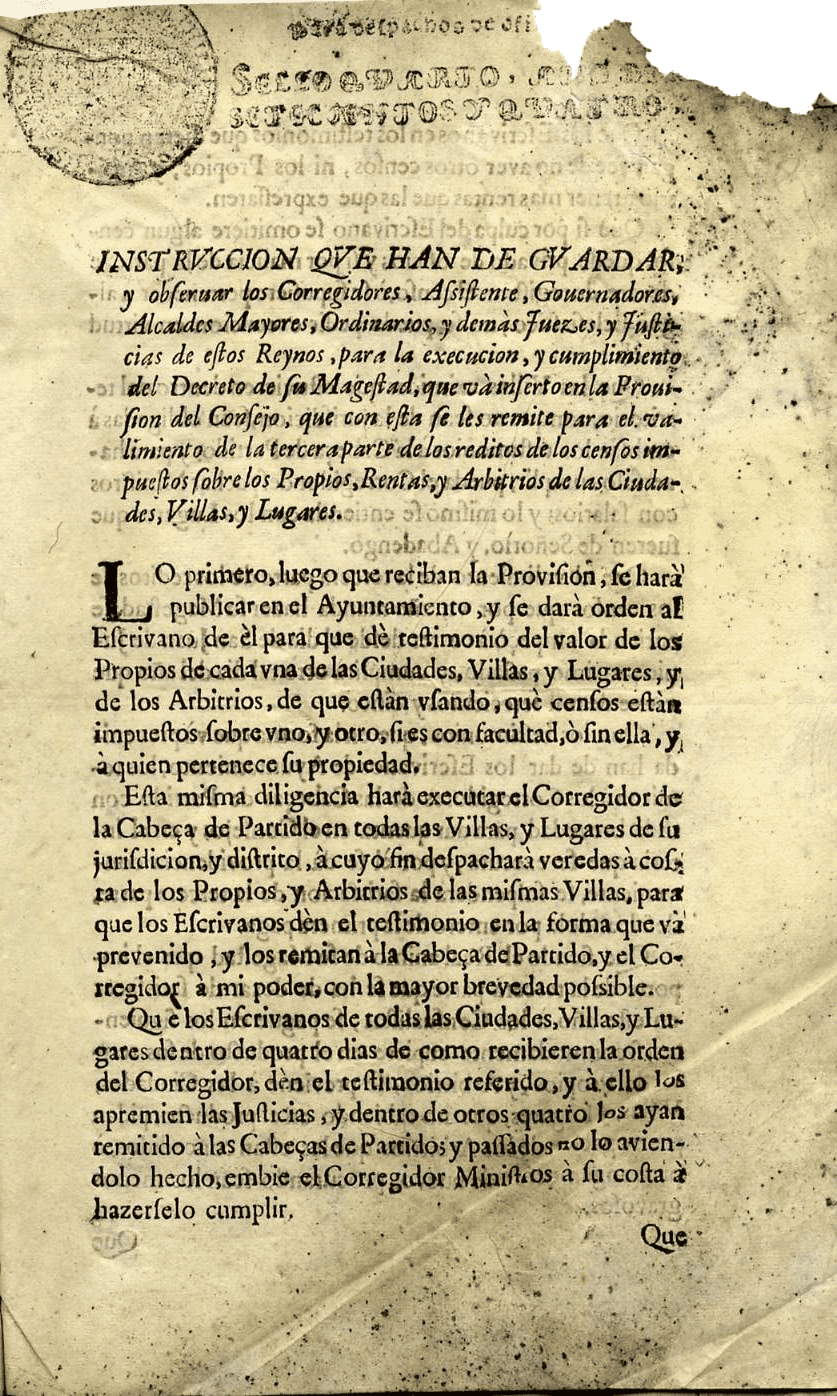 para despachos de ofi
SELLO QVARTO, A
SETECIENTOS Y QVATRO
INSTRVCCION QVE HAN DE GVARDAR,
y obſeruar los Corregidores, Aſsiſtente, Gouernadores,
Alcaldes Mayores, Ordinarios, y demàs Juezes, y Juſti-
cias de eſtos Reynos, para la execucion, y cumplimiento
del Decreto de ſu Mageſtad, que và inſerto en la Proui-
ſion del Conſejo, que con eſta ſe les remite para el va-
limiento de la tercera parte de los reditos de los cenſos im-
pueſtos ſobre los Propios, Rentas, y Arbitrios de las Ciuda-
des, Villas, y Lugares.
LO primero, luego que reciban la Proviſion, ſe harà
publicar en el Ayuntamiento, y ſe darà orden al
Eſcrivano de èl para que dè teſtimonio del valor de los
Propios de cada vna de las Ciudades, Villas, y Lugares, y
de los Arbitrios, de que eſtàn vſando, què cenſos eſtàn
impueſtos ſobre vno, y otro, ſi es con facultad, ò ſin ella, y
à quien pertenece ſu propiedad.
Eſta miſma diligencia harà executar el Corregidor de
la Cabeça de Partido en todas las Villas, y Lugares de ſu
juriſdicion, y diſtrito, à cuyo fin deſpacharà veredas à coſ-
ta de los Propios, y Arbitrios de las miſmas Villas, para
que los Eſcrivanos dèn el teſtimonio en la forma que và
prevenido, y los remitan à la Cabeça de Partido, y el Co-
rregidor à mi poder, con la mayor brevedad poſsible.
Que los Eſcrivanos de todas las Ciudades, Villas, y Lu-
gares dentro de quatro dias de como recibieren la orden
del Corregidor, dèn el teſtimonio referido, y à ello los
apremien las Juſticias, y dentro de otros quatro los ayan
remitido à las Cabeças de Partido; y paſſados no lo avien-
dolo hecho, embie el Corregidor Miniſtros à ſu coſta à
hazerſelo cumplir.
Que